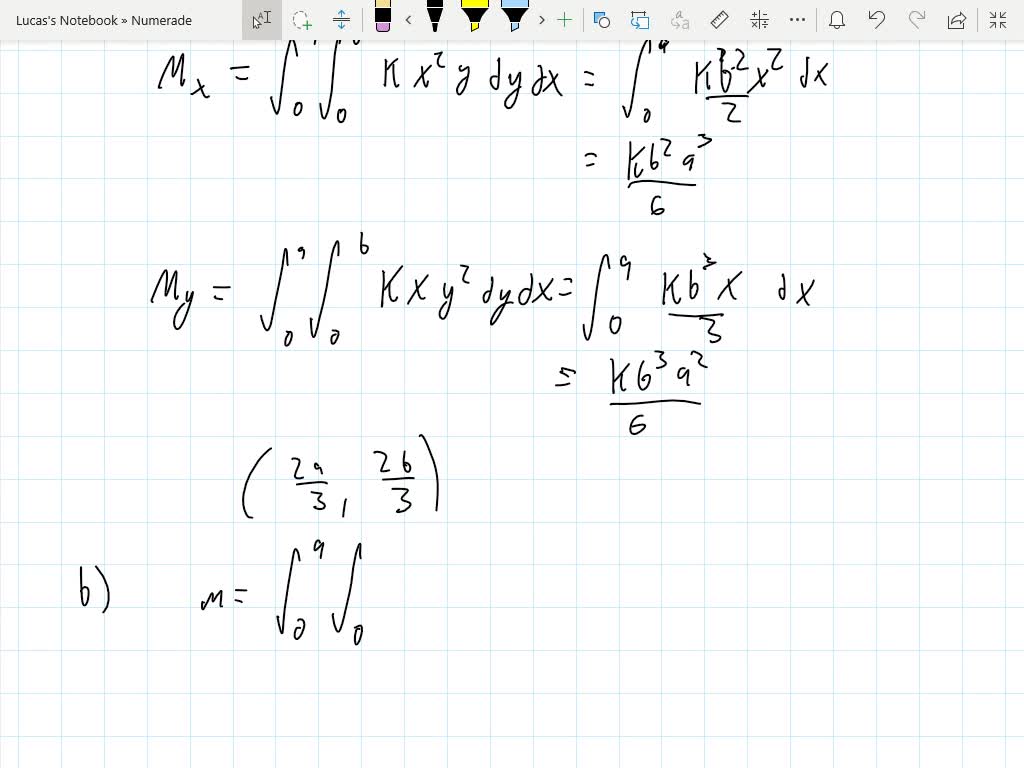 Lucas's Notebook » Numerade
M_x = ∫_0 ∫_0 K x² y dy dx = ∫_0^a K b² x² / 2 dx
= K b² a³ / 6
M_y = ∫_0^a ∫_0^b K x y² dy dx = ∫_0^a K b³ x / 3 dx
= K b³ a² / 6
( 2a/3 , 2b/3 )
b) m = ∫_0^a ∫_0